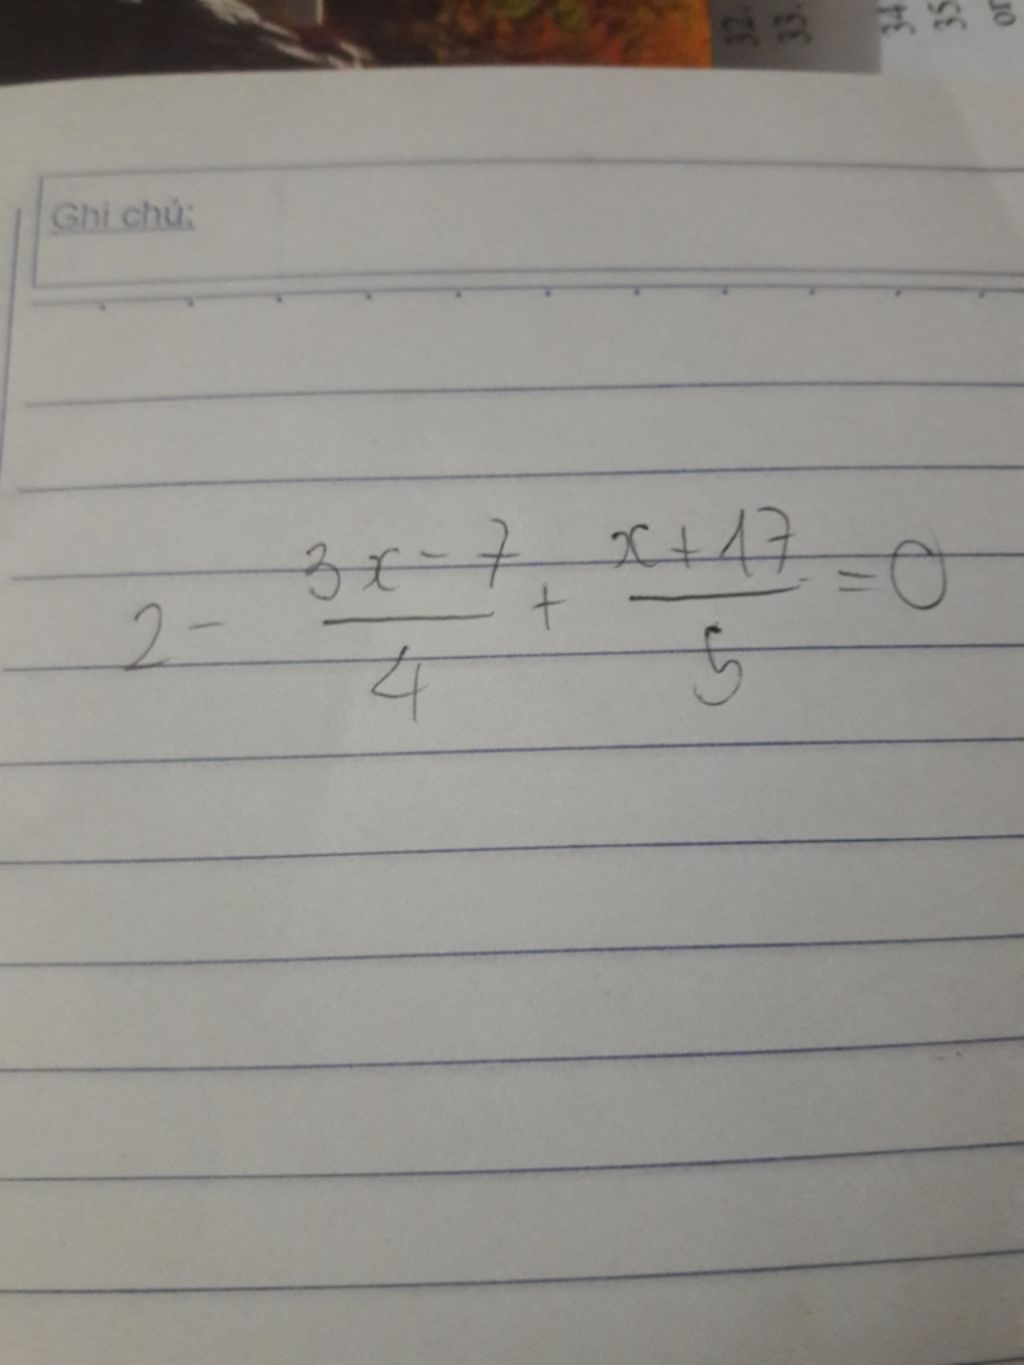 32.
33.
34
35
or
Ghi chú:
2 - \frac{3x-7}{4} + \frac{x+17}{5} = 0